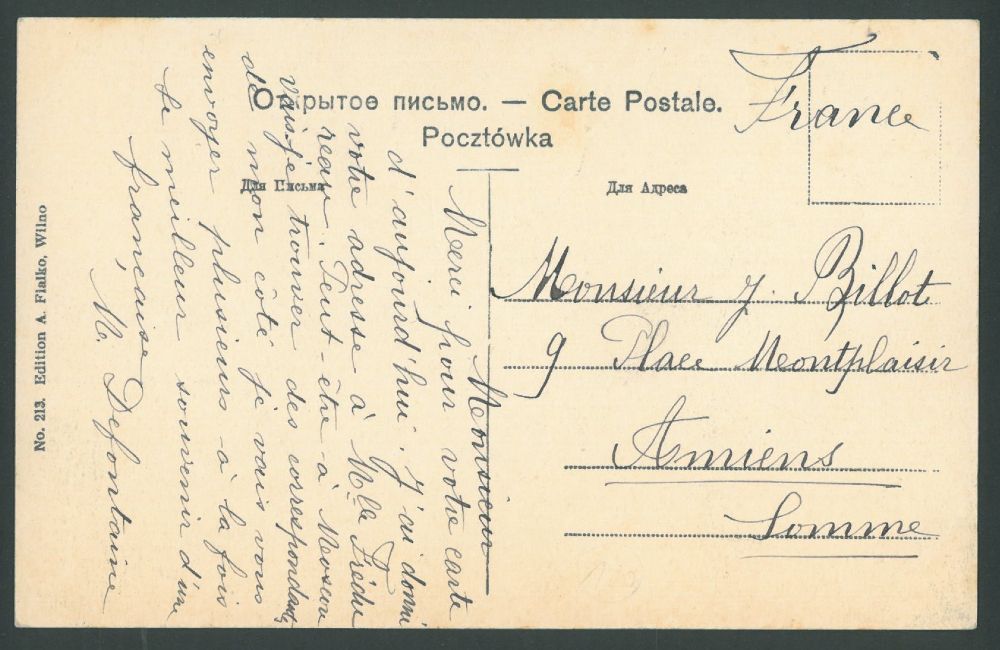 Открытое письмо. — Carte Postale.
Pocztówka
Для Письма
Для Адреса
France
Monsieur J. Billot
9 Place Montplaisir
Amiens
Somme
Monsieur
Merci pour votre carte
d'aujourd'hui. J'ai donné
votre adresse à Mlle
reau. Peut-être à Moscou
vais-je trouver des correspondants
de mon côté je vais vous
envoyer plusieurs à la fois
Le meilleur souvenir d'une
française
M. Defontaine
No. 213. Edition A. Fialko, Wilno